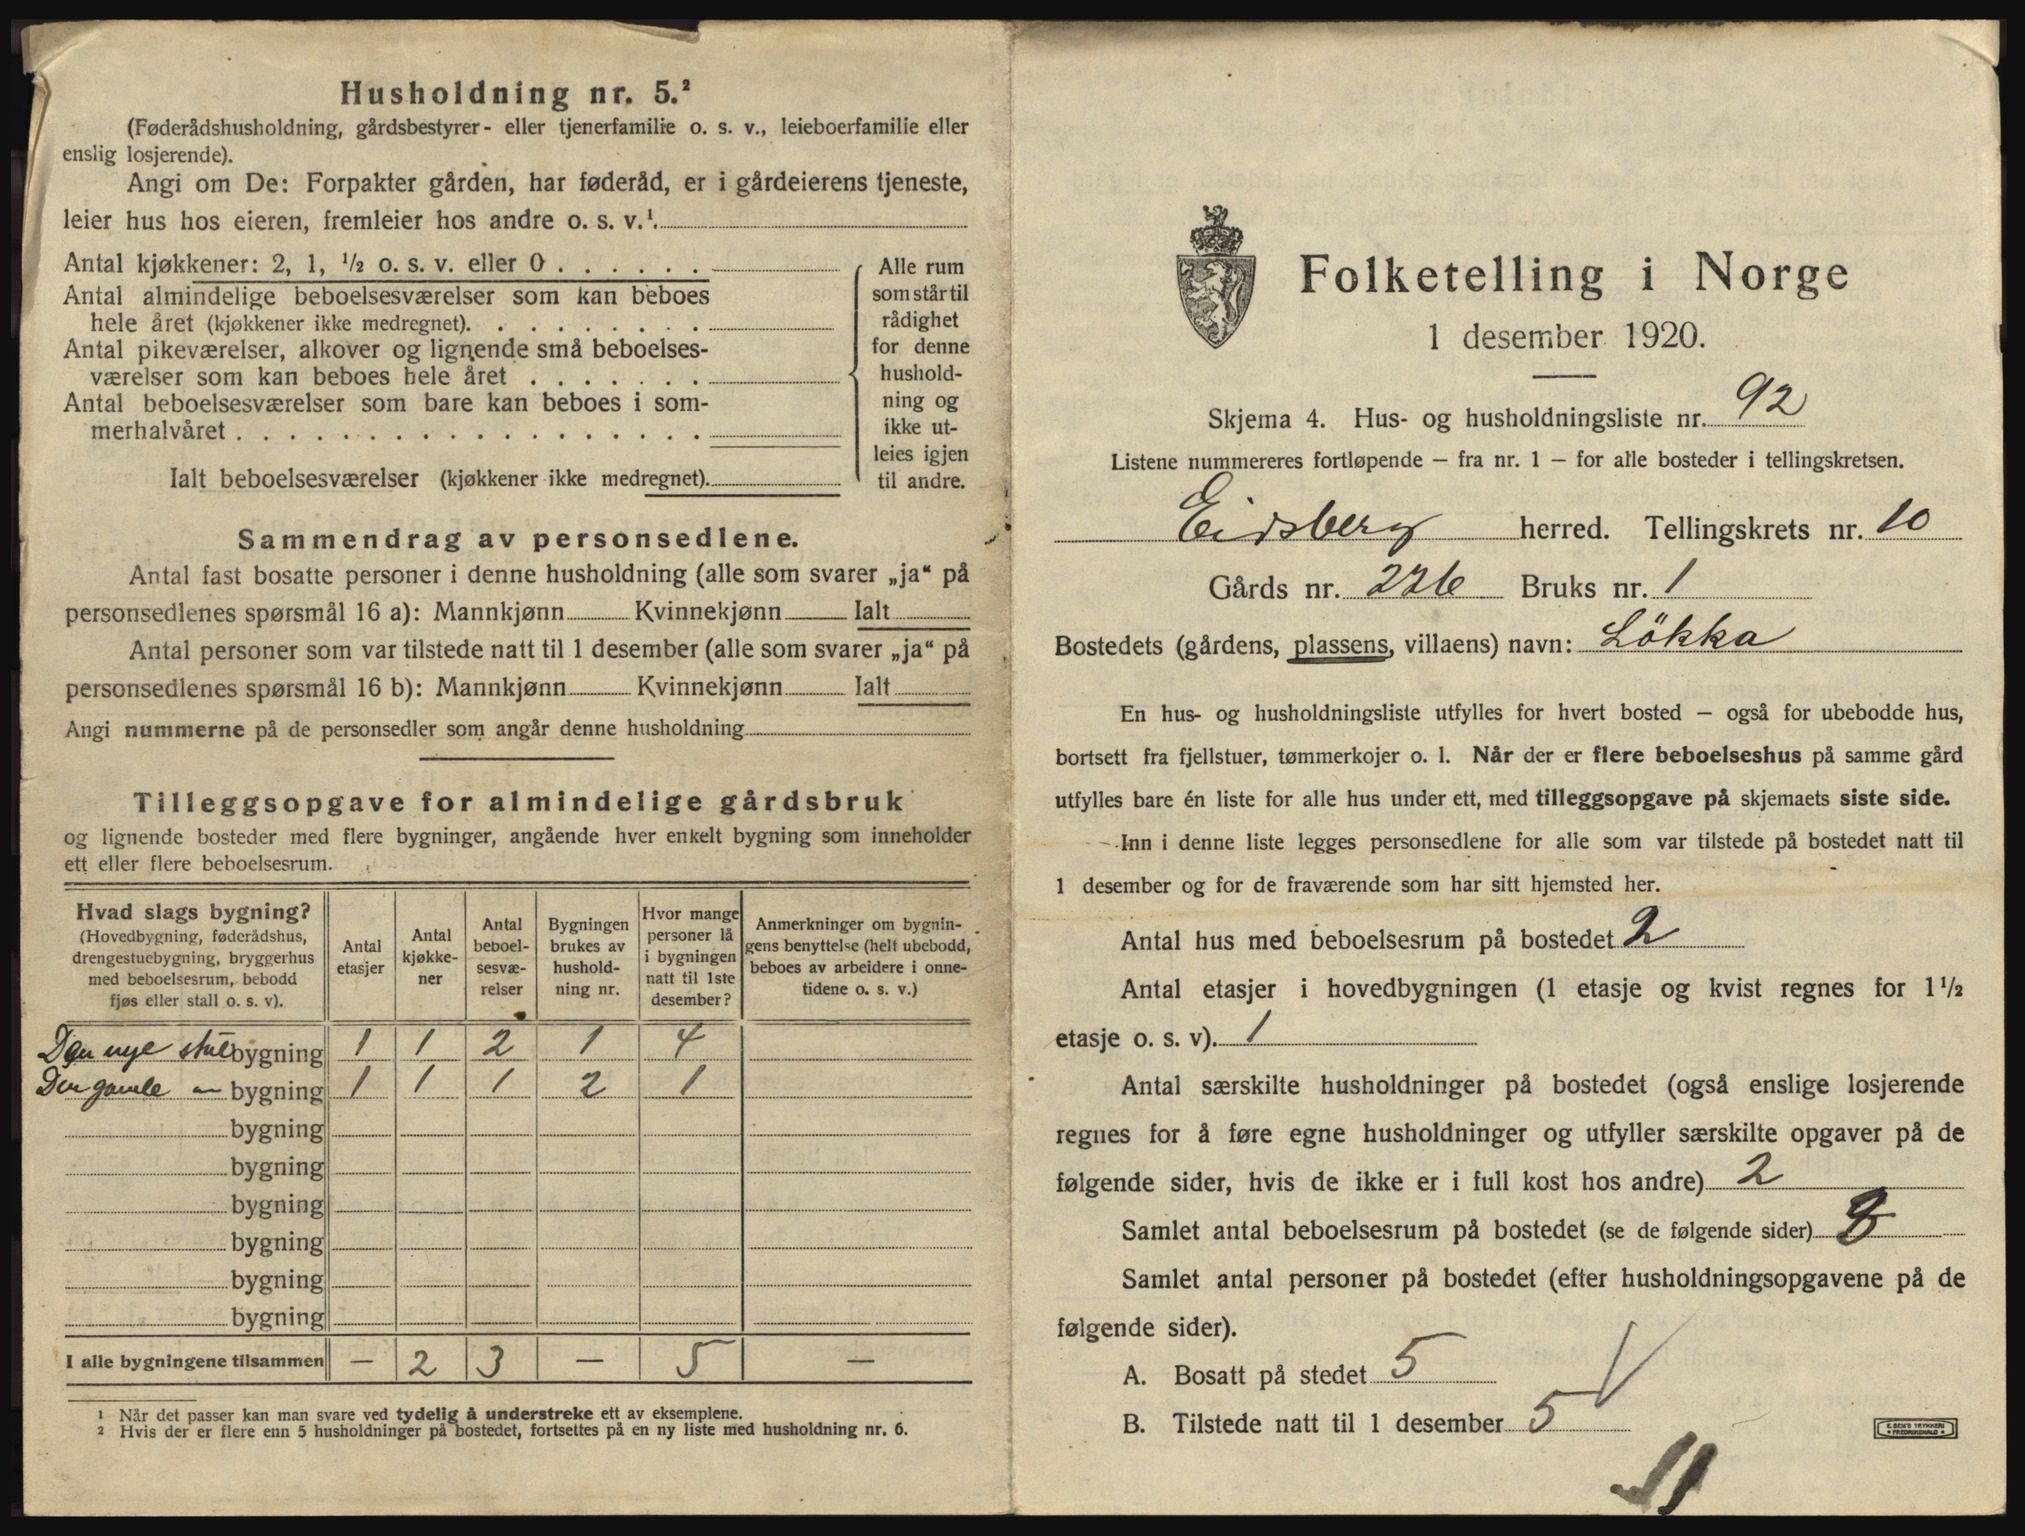 Husholdning nr. 5.²
(Føderådshusholdning, gårdsbestyrer- eller tjenerfamilie o. s. v., leieboerfamilie eller
enslig losjerende).
Angi om De: Forpakter gården, har føderåd, er i gårdeierens tjeneste,
leier hus hos eieren, fremleier hos andre o. s. v.¹.
Antal kjøkkener: 2, 1, ½ o. s. v. eller 0 . . . . . .
Antal almindelige beboelsesværelser som kan beboes
hele året (kjøkkener ikke medregnet). . . . . . . . .
Antal pikeværelser, alkover og lignende små beboelses-
værelser som kan beboes hele året . . . . . . .
Antal beboelsesværelser som bare kan beboes i som-
merhalvåret . . . . . . . . . . . . . . . . . .
Ialt beboelsesværelser (kjøkkener ikke medregnet).
Alle rum
som står til
rådighet
for denne
hushold-
ning og
ikke ut-
leies igjen
til andre.
Sammendrag av personsedlene.
Antal fast bosatte personer i denne husholdning (alle som svarer „ja“ på
personsedlenes spørsmål 16 a): Mannkjønn Kvinnekjønn Ialt
Antal personer som var tilstede natt til 1 desember (alle som svarer „ja“ på
personsedlenes spørsmål 16 b): Mannkjønn Kvinnekjønn Ialt
Angi nummerne på de personsedler som angår denne husholdning
Tilleggsopgave for almindelige gårdsbruk
og lignende bosteder med flere bygninger, angående hver enkelt bygning som inneholder
ett eller flere beboelsesrum.
Hvad slags bygning?
(Hovedbygning, føderådshus,
drengestuebygning, bryggerhus
med beboelsesrum, bebodd
fjøs eller stall o. s. v).
Antal
etasjer
Antal
kjøkke-
ner
Antal
beboel-
sesvæ-
relser
Bygningen
brukes av
hushold-
ning nr.
Hvor mange
personer lå
i bygningen
natt til 1ste
desember?
Anmerkninger om bygnin-
gens benyttelse (helt ubebodd,
beboes av arbeidere i onne-
tidene o. s. v.)
Den nye stue bygning 1 1 2 1 4
Den gamle — bygning 1 1 1 2 1
bygning
bygning
bygning
bygning
bygning
bygning
I alle bygningene tilsammen — 2 3 — 5 —
¹ Når det passer kan man svare ved tydelig å understreke ett av eksemplene.
² Hvis der er flere enn 5 husholdninger på bostedet, fortsettes på en ny liste med husholdning nr. 6.
Folketelling i Norge
1 desember 1920.
Skjema 4. Hus- og husholdningsliste nr. 92
Listene nummereres fortløpende — fra nr. 1 — for alle bosteder i tellingskretsen.
Eidsberg herred. Tellingskrets nr. 10
Gårds nr. 226 Bruks nr. 1
Bostedets (gårdens, plassens, villaens) navn: Lökka
En hus- og husholdningsliste utfylles for hvert bosted — også for ubebodde hus,
bortsett fra fjellstuer, tømmerkojer o. l. Når der er flere beboelseshus på samme gård
utfylles bare én liste for alle hus under ett, med tilleggsopgave på skjemaets siste side.
Inn i denne liste legges personsedlene for alle som var tilstede på bostedet natt til
1 desember og for de fraværende som har sitt hjemsted her.
Antal hus med beboelsesrum på bostedet 2
Antal etasjer i hovedbygningen (1 etasje og kvist regnes for 1½
etasje o. s. v). 1
Antal særskilte husholdninger på bostedet (også enslige losjerende
regnes for å føre egne husholdninger og utfyller særskilte opgaver på de
følgende sider, hvis de ikke er i full kost hos andre) 2
Samlet antal beboelsesrum på bostedet (se de følgende sider)
Samlet antal personer på bostedet (efter husholdningsopgavene på de
følgende sider).
A. Bosatt på stedet 5
B. Tilstede natt til 1 desember 5
E. SEM'S TRYKKERI
FREDRIKSHALD